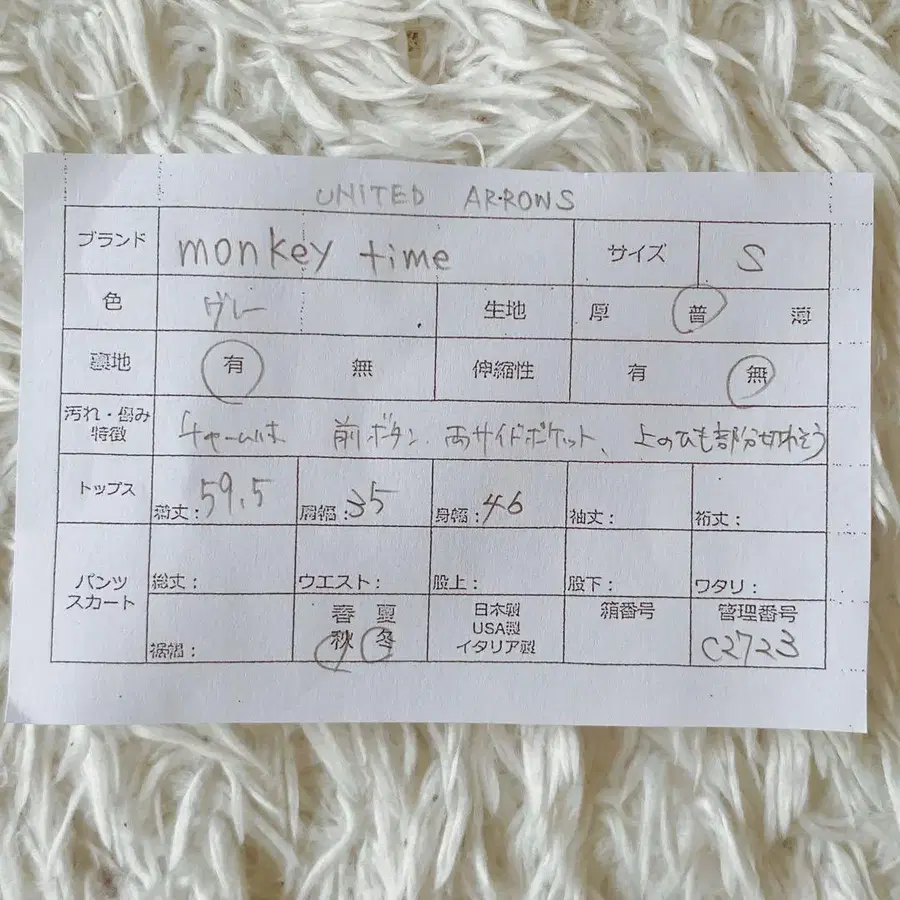 UNITED ARROWS
ブランド monkey time サイズ S
色 グレー 生地 厚 普 薄
裏地 有 無 伸縮性 有 無
汚れ・傷み
特徴 前ボタン、両サイドポケット、上のひも部分切れそう
トップス 着丈:59.5 肩幅:35 身幅:46 袖丈: 裄丈:
パンツ
スカート 総丈: ウエスト: 股上: 股下: ワタリ:
裾幅: 春 夏 日本製 箱番号 管理番号
秋 冬 USA製 C2723
イタリア製